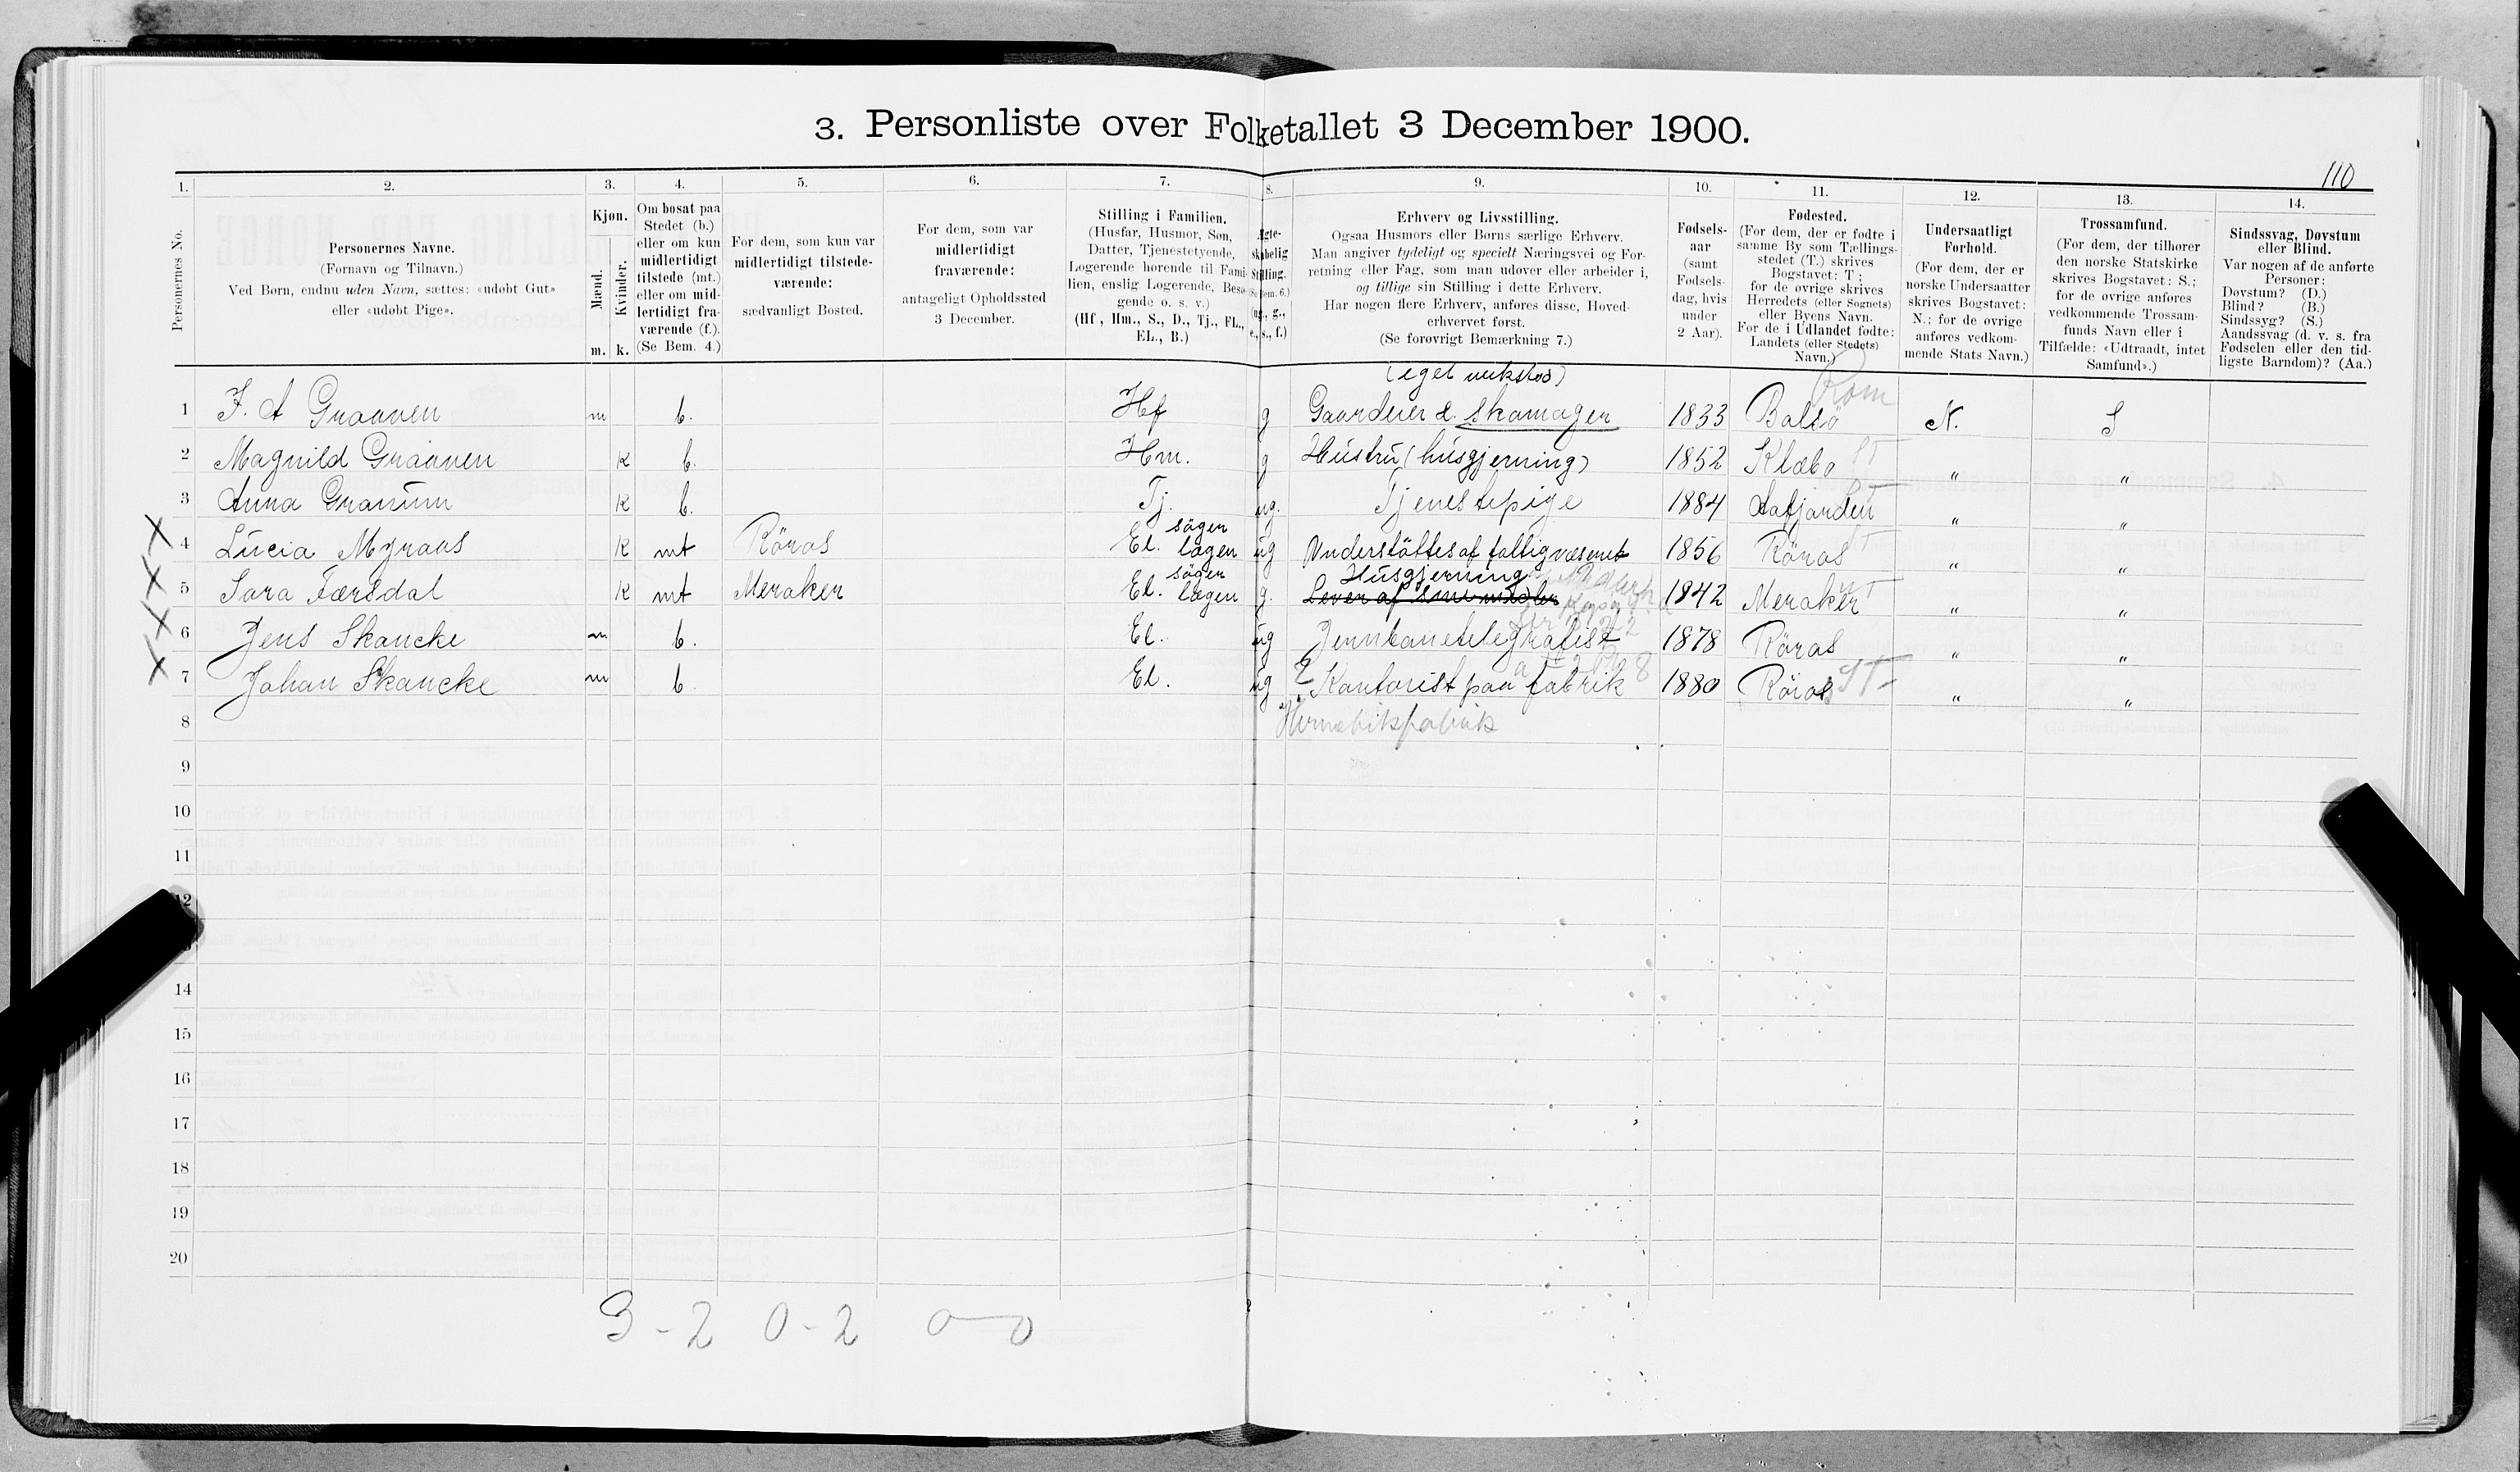 3. Personliste over Folketallet 3 December 1900.
110
1. 2. 3. 4. 5. 6. 7. 8. 9. 10. 11. 12. 13. 14.
Personernes No.
Personernes Navne.
(Fornavn og Tilnavn.)
Ved Børn, endnu uden Navn, sættes: «udøbt Gut»
eller «udøbt Pige».
Kjøn.
Mænd.
Kvinder.
m. k.
Om bosat paa
Stedet (b.)
eller om kun
midlertidigt
tilstede (mt.)
eller om mid-
lertidigt fra-
værende (f.).
(Se Bem. 4.)
For dem, som kun var
midlertidigt tilstede-
værende:
sædvanligt Bosted.
For dem, som var
midlertidigt
fraværende:
antageligt Opholdssted
3 December.
Stilling i Familien.
(Husfar, Husmor, Søn,
Datter, Tjenestetyende,
Logerende hørende til Fami-
lien, enslig Logerende, Besø-
gende o. s. v.)
(Hf, Hm., S., D., Tj., FL.,
EL., B.)
Ægte-
skabelig
Stilling.
(Se Bem. 6.)
(ug., g.,
e., s., f.)
Erhverv og Livsstilling.
Ogsaa Husmors eller Børns særlige Erhverv.
Man angiver tydeligt og specielt Næringsvei og For-
retning eller Fag, som man udøver eller arbeider i,
og tillige sin Stilling i dette Erhverv.
Har nogen flere Erhverv, anføres disse, Hoved-
erhvervet først.
(Se forøvrigt Bemærkning 7.)
Fødsels-
aar
(samt
Fødsels-
dag, hvis
under
2 Aar).
Fødested.
(For dem, der er fødte i
samme By som Tællings-
stedet (T.) skrives
Bogstavet: T;
for de øvrige skrives
Herredets (eller Sognets)
eller Byens Navn.
For de i Udlandet fødte:
Landets (eller Stedets)
Navn.)
Undersaatligt
Forhold.
(For dem, der er
norske Undersaatter
skrives Bogstavet:
N.; for de øvrige
anføres vedkom-
mende Stats Navn.)
Trossamfund.
(For dem, der tilhører
den norske Statskirke
skrives Bogstavet: S.;
for de øvrige anføres
vedkommende Trossam-
funds Navn eller i
Tilfælde: «Udtraadt, intet
Samfund».)
Sindssvag, Døvstum
eller Blind.
Var nogen af de anførte
Personer:
Døvstum? (D.)
Blind? (B.)
Sindssyg? (S.)
Aandssvag (d. v. s. fra
Fødselen eller den tid-
ligste Barndom)? (Aa.)
(eget verksted) Rom
1 J. A Graaven m b. Hf g Gaardeier & skomager 1833 Bolsö N. S
2 Magnild Graaven k b. Hm. g Hustru (husgjerning) 1852 Klæbo ST " "
3 Anna Granum k b. Tj. ug. Tjenestepige 1884 Aafjorden ST " "
söger
X 4 Lucia Myraas k mt Röros El. lægen ug Understöttes af fattigvæsenet 1856 Röros ST " "
söger Husgjerning
X 5 Sara Færsdal k mt Meraker El. lægen g. Lever af sine midler 1842 Meraker NT " "
X 6 Jens Skancke m b. El. ug Jernbanetelegrafist 1878 Röros " "
X 7 Johan Skancke m b El. ug Kontorist paa fabrik 8 1880 Röros ST " "
8
9
10
11
12
14
15
16
17
18
19
20
3 - 2 0 - 2 0 - 0